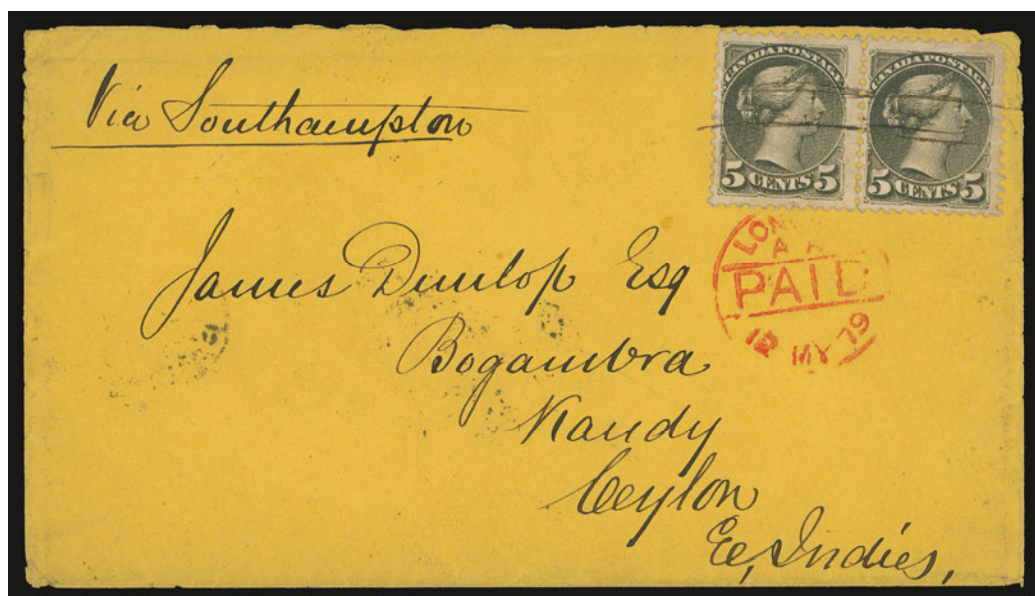 Via Southampton
CANADA POSTAGE
5 CENTS 5
CANADA POSTAGE
5 CENTS 5
PAID
12 MY 79
James Dunlop Esq
Bogambra
Kandy
Ceylon
Ee, Indies,